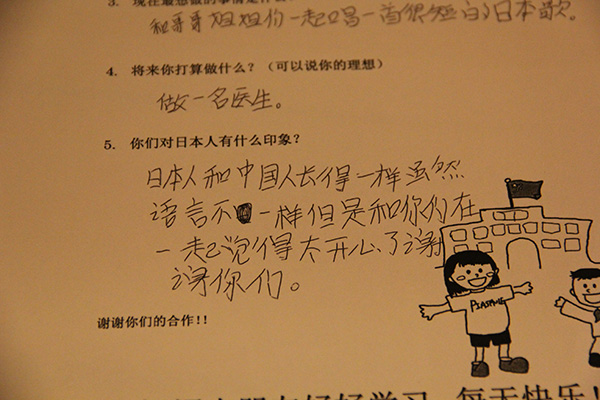 3. 现在最想做的事情是什么?
和哥哥姐姐们一起唱一首很短的日本歌。
4. 将来你打算做什么?(可以说你的理想)
做一名医生。
5. 你们对日本人有什么印象?
日本人和中国人长得一样虽然
语言不一样但是和你们在
一起觉得太开心了谢
谢你们。
谢谢你们的合作!!
好好学习,每天快乐!